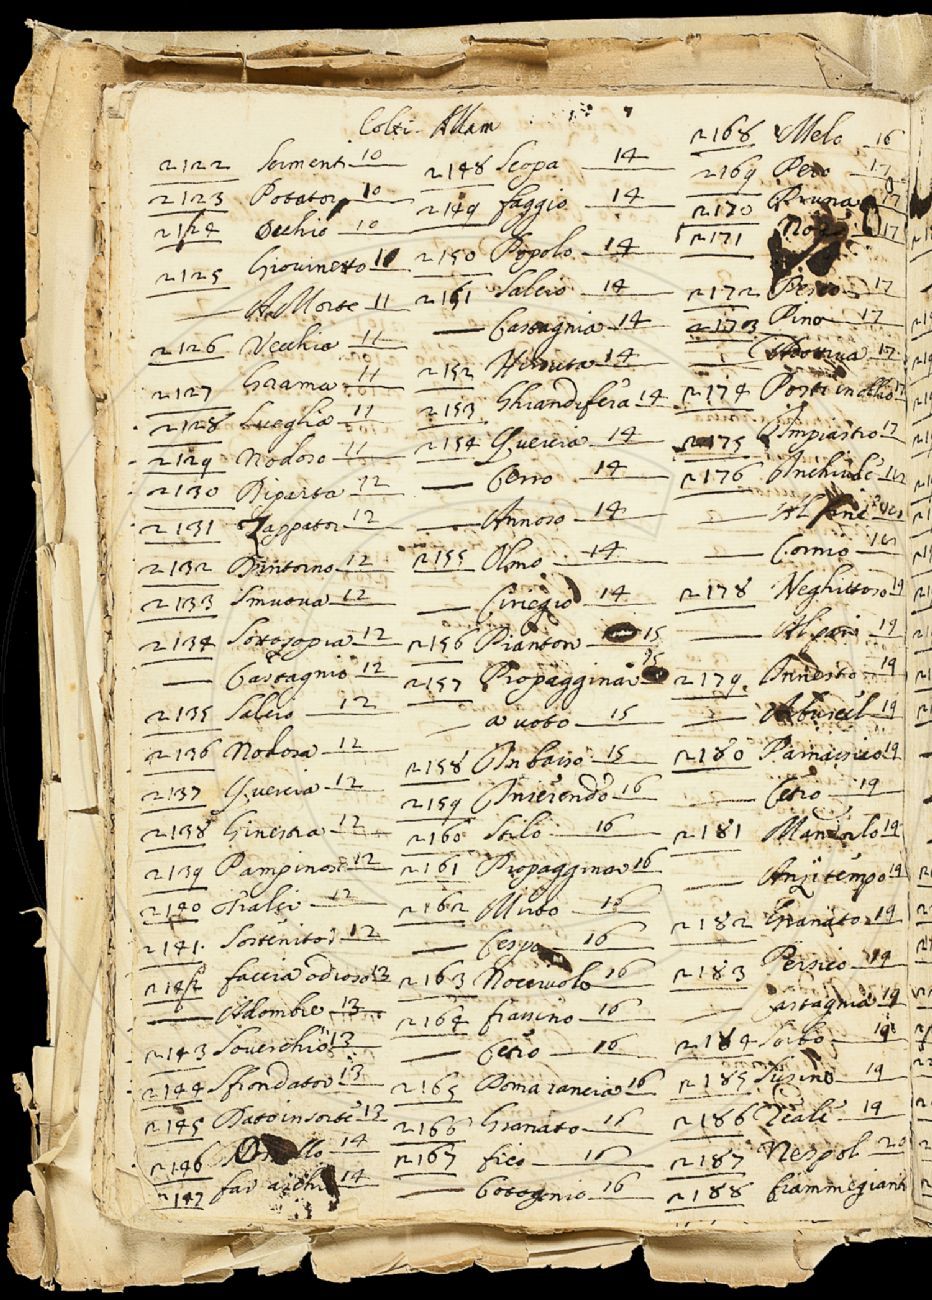 Colti. Allam
n 122 Sermenti 10
n 123 Potator 10
n 124 Occhio 10
n 125 Giovinetto 10
— A Morte 11
n 126 Vecchia 11
n 127 Grama 11
n 128 Sveglia 11
n 129 Nodoso 11
n 130 Riparta 12
n 131 Zappator 12
n 132 Dintorno 12
n 133 Smuova 12
n 134 Sotosopia 12
— Castagnio 12
n 135 Salcio 12
n 136 Nodosa 12
n 137 Quercia 12
n 138 Ginestra 12
n 139 Pampinos 12
n 140 Tralci 12
n 141 Sostenitor 12
n 142 faccia odioso 13
— Adombre 13
n 143 Soverchio 13
n 144 Sfrondator 13
n 145 Dato in sorte 13
n 146 14
n 147 14
n 148 Scopa 14
n 149 faggio 14
n 150 Popolo 14
n 151 Salcio 14
— Castagnia 14
n 152 Hirsuta 14
n 153 Ghiandifera 14
n 154 Quercia 14
— Cerro 14
— Annoso 14
n 155 Olmo 14
— Ciriegio 14
n 156 Pianton 15
n 157 Propagginar 15
— a voto 15
n 158 In basso 15
n 159 Inserendo 16
n 160 Stilo 16
n 161 Propagginar 16
n 162 Mirto 16
— Cespo 16
n 163 Nocciuolo 16
n 164 frassino 16
— Cetro 16
n 165 Pomarancia 16
n 166 Granato 16
n 167 fico 16
— Cotognio 16
n 168 Melo 16
n 169 Pero 17
n 170 Pruna 17
n 171 17
n 172 Persco 17
n 173 Pino 17
— 17
n 174 17
n 175 Impiastro 17
n 176
—
— Cornio
n 178 Neghittoso 19
— 19
n 179 Innesto 19
— Arbuscel 19
n 180 19
— Cetro 19
n 181 Mandorlo 19
— Anzi tempo 19
n 182 Granato 19
n 183 Persico 19
— Castagnia 19
n 184 Sorbo 19
n 185 Susino 19
n 186 19
n 187 Nespol 20
n 188 fiammegiant